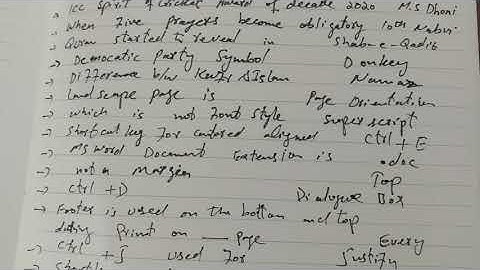 ICC Spirit of Cricket Award of decade 2020 M.S Dhoni
→ When Five prayers become obligatory 10th Nabvi
→ Quran started to reveal in Shab-e-Qadir
→ Democatic Party Symbol Donkey
→ Difference b/w Kufr & Islam Namaz
→ Landscape page is Page Orientation
→ which is not Font style Superscript
→ Shortcut key For centered aligned Ctrl + E
→ MS Word Document Extension is .doc
→ not a Margin Top
→ Ctrl + D Dialogue Box
→ Footer is used on the bottom and top
during Print on ___ Page Every
→ Ctrl + J used For Justify